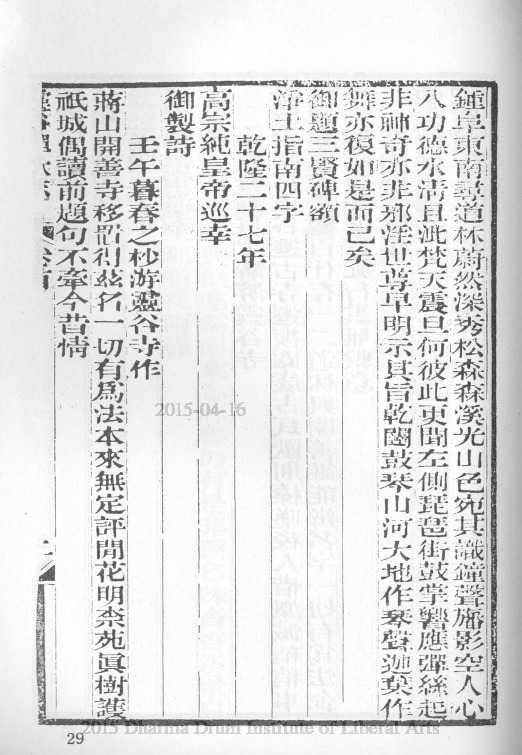 鍾阜東南尋道林蔚然深秀松森森溪光山色宛其識鐘聲旛影空人心
八功德水清且泚梵天震旦何彼此更聞左側琵琶街鼓掌響應彈絲起
非神奇亦非邪淫世尊早明示其旨乾闥鼓琴山河大地作琴聲迦葉作
舞亦復如是而已矣
御題三賢碑額
淨土指南四字
乾隆二十七年
高宗純皇帝巡幸
御製詩
壬午暮春之杪游靈谷寺作
蔣山開善寺移置得茲名一切有為法本來無定評聞花明柰苑眞樹護
祇城偶讀前題句不牽今昔情
2015-04-16
2013 Dharma Drum Institute of Liberal Arts
29